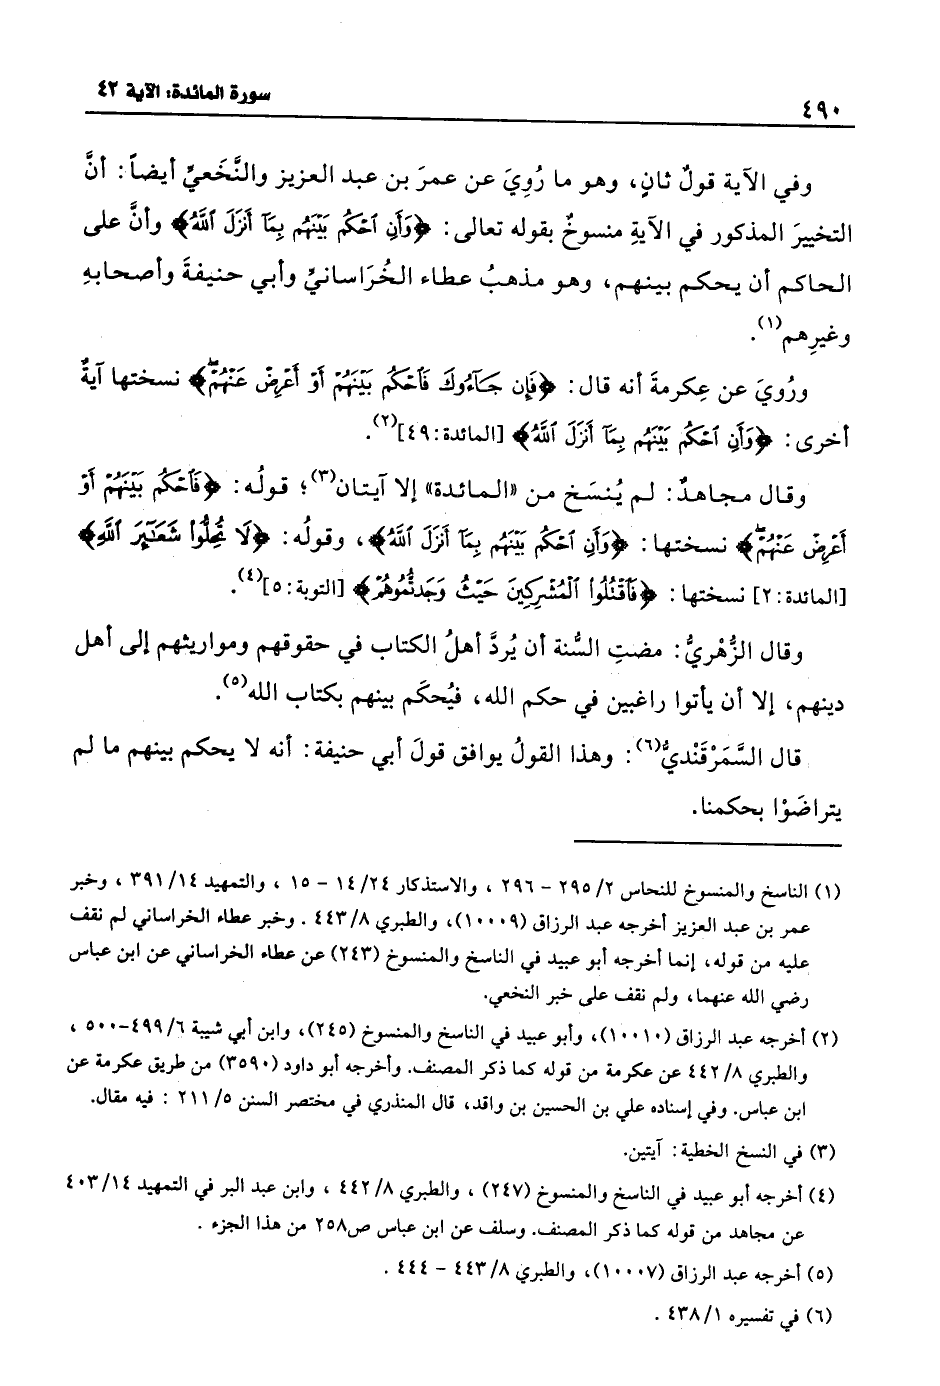 ٤٩٠
سورة المائدة: الآية ٤٢
وفي الآية قولٌ ثانٍ، وهو ما رُوِيَ عن عمرَ بن عبد العزيز والنَّخَعيِّ أيضاً: أنَّ
التخييرَ المذكور في الآيةِ منسوخٌ بقوله تعالى: ﴿وَأَنِ ٱحْكُم بَيْنَهُم بِمَآ أَنزَلَ ٱللَّهُ﴾ وأنَّ على
الحاكم أن يحكم بينهم، وهو مذهبُ عطاء الخُرَاسانيِّ وأبي حنيفةَ وأصحابهِ
وغيرِهم(١).
ورُويَ عن عِكرمةَ أنه قال: ﴿فَإِن جَآءُوكَ فَٱحْكُم بَيْنَهُمْ أَوْ أَعْرِضْ عَنْهُمْۖ﴾ نسختها آيةٌ
أخرى: ﴿وَأَنِ ٱحْكُم بَيْنَهُم بِمَآ أَنزَلَ ٱللَّهُ﴾ [المائدة: ٤٩](٢).
وقال مجاهدٌ: لم يُنسَخ من «المائدة» إلا آيتان(٣)؛ قولُه: ﴿فَٱحْكُم بَيْنَهُمْ أَوْ
أَعْرِضْ عَنْهُمْۖ﴾ نسختها: ﴿وَأَنِ ٱحْكُم بَيْنَهُم بِمَآ أَنزَلَ ٱللَّهُ﴾، وقولُه: ﴿لَا تُحِلُّوا۟ شَعَـٰٓئِرَ ٱللَّهِ﴾
[المائدة: ٢] نسختها: ﴿فَٱقْتُلُوا۟ ٱلْمُشْرِكِينَ حَيْثُ وَجَدتُّمُوهُمْ﴾ [التوبة: ٥](٤).
وقال الزُّهْريُّ: مضتِ السُّنة أن يُردَّ أهلُ الكتاب في حقوقهم ومواريثهم إلى أهل
دينهم، إلا أن يأتوا راغبين في حكم الله، فيُحكَم بينهم بكتاب الله(٥).
قال السَّمَرْقَنديُّ(٦): وهذا القولُ يوافق قولَ أبي حنيفة: أنه لا يحكم بينهم ما لم
يتراضَوْا بحكمنا.
(١) الناسخ والمنسوخ للنحاس ٢/ ٢٩٥ - ٢٩٦ ، والاستذكار ٢٤/ ١٤ - ١٥ ، والتمهيد ١٤/ ٣٩١ ، وخبر
عمر بن عبد العزيز أخرجه عبد الرزاق (١٠٠٠٩)، والطبري ٨/ ٤٤٣ . وخبر عطاء الخراساني لم نقف
عليه من قوله، إنما أخرجه أبو عبيد في الناسخ والمنسوخ (٢٤٣) عن عطاء الخراساني عن ابن عباس
رضي الله عنهما، ولم نقف على خبر النخعي.
(٢) أخرجه عبد الرزاق (١٠٠١٠)، وأبو عبيد في الناسخ والمنسوخ (٢٤٥)، وابن أبي شيبة ٦/ ٤٩٩-٥٠٠ ،
والطبري ٨/ ٤٤٢ عن عكرمة من قوله كما ذكر المصنف. وأخرجه أبو داود (٣٥٩٠) من طريق عكرمة عن
ابن عباس. وفي إسناده علي بن الحسين بن واقد، قال المنذري في مختصر السنن ٥/ ٢١١ : فيه مقال.
(٣) في النسخ الخطية: آيتين.
(٤) أخرجه أبو عبيد في الناسخ والمنسوخ (٢٤٧) ، والطبري ٨/ ٤٤٢ ، وابن عبد البر في التمهيد ١٤/ ٤٠٣
عن مجاهد من قوله كما ذكر المصنف. وسلف عن ابن عباس ص٢٥٨ من هذا الجزء .
(٥) أخرجه عبد الرزاق (١٠٠٠٧)، والطبري ٨/ ٤٤٣ - ٤٤٤ .
(٦) في تفسيره ١/ ٤٣٨ .